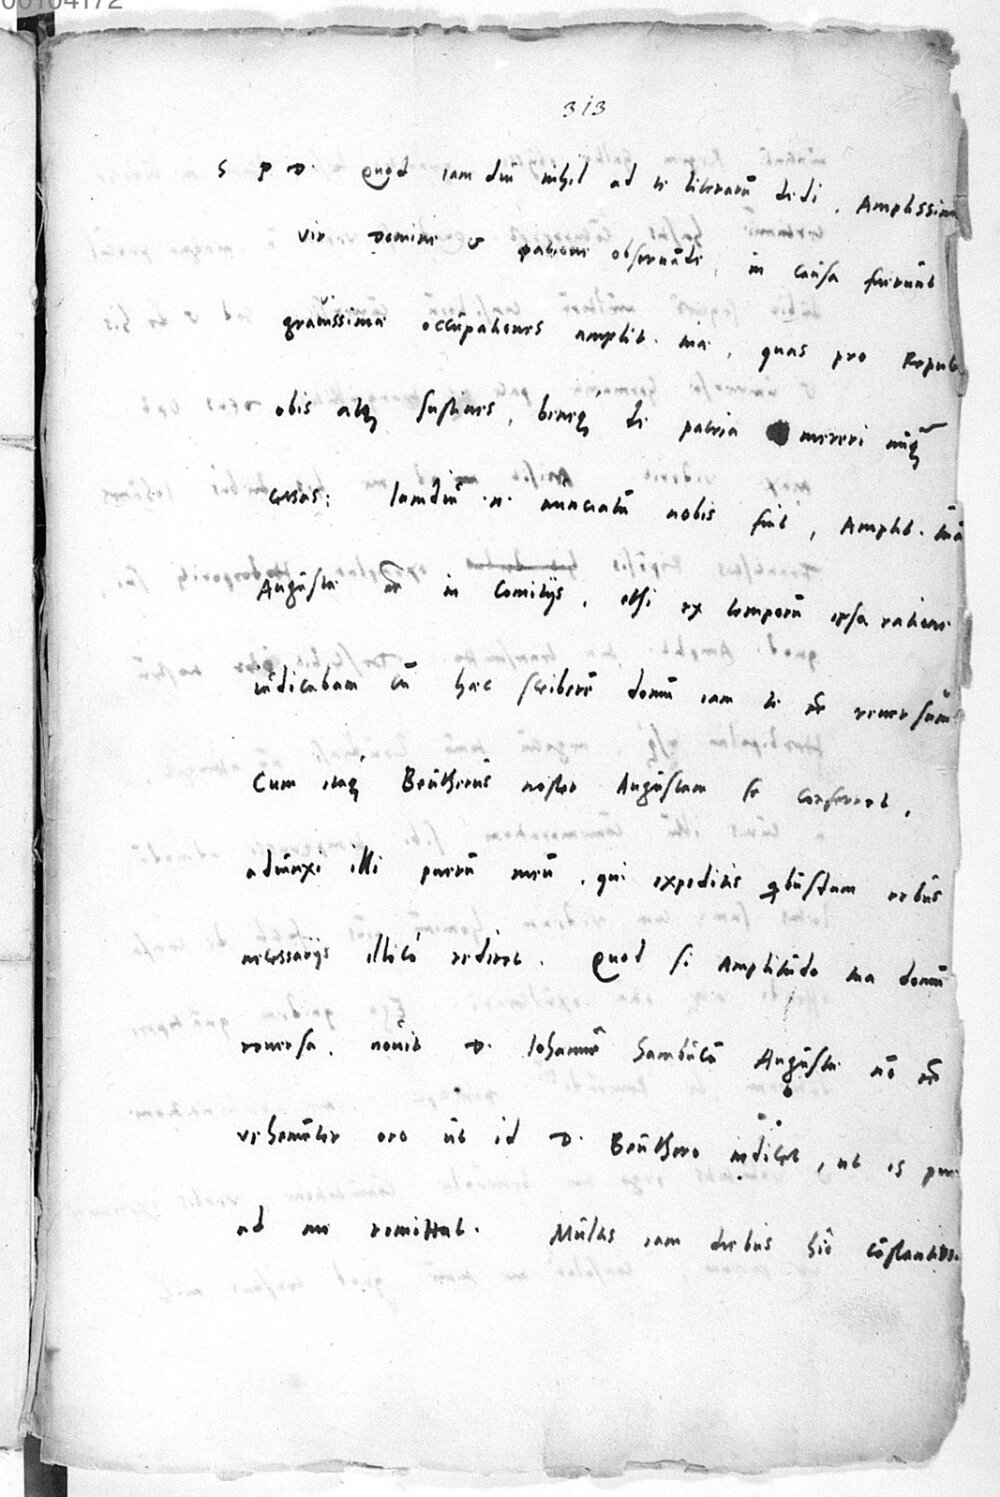 00104172
313
S P D. Quod iam diu nihil ad te literarū dedi, Amplissim
vir Domine & patrone obseruāde, in causa fuerunt
grauissimae occupationes amplit. tuae, quas pro Repub
obis atq sustines, beneq de patria mereri nūq
cessas: Iamdiu .n. nunciatū nobis fuit, Amplit. tuā
Augustae eē in Comitijs, etsi ex temporū ipsa ratione
iudicabam cū hac scriberē domū iam te eē reuersum
Cum itaq Beutherus noster Augustam se conferret,
adiunxi illi puerū meū, qui expeditis qbusdam rebus
necessarijs illico rediret. Quod si Amplitudo tua domū
reuersa, nouit D. Iohannē Sambucū Augustae nō eē
vehemēter oro ut id D. Beuthero indicet, ut is puer
ad me remittat. Multis iam diebus hic cōstantiss.